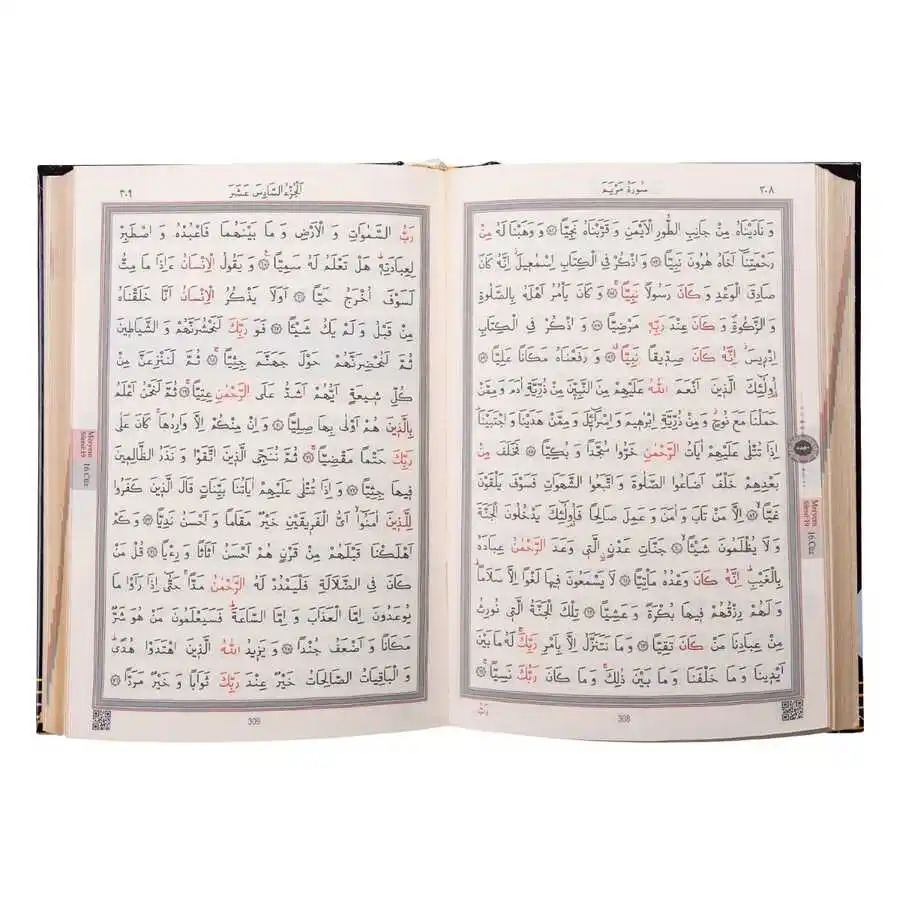 سورة مريم
٣٠٨
وَ نَادَيْنَاهُ مِنْ جَانِبِ الطُّورِ الْاَيْمَنِ وَ قَرَّبْنَاهُ نَجِيًّا ﴿٥٢﴾ وَ وَهَبْنَا لَهُ مِنْ
رَحْمَتِنَٓا اَخَاهُ هٰرُونَ نَبِيًّا ﴿٥٣﴾ وَ اذْكُرْ فِي الْكِتَابِ اِسْمٰعٖيلَ اِنَّهُ كَانَ
صَادِقَ الْوَعْدِ وَ كَانَ رَسُولًا نَبِيًّا ﴿٥٤﴾ وَ كَانَ يَاْمُرُ اَهْلَهُ بِالصَّلٰوةِ
وَ الزَّكٰوةِ وَ كَانَ عِنْدَ رَبِّهٖ مَرْضِيًّا ﴿٥٥﴾ وَ اذْكُرْ فِي الْكِتَابِ
اِدْرٖيسَ اِنَّهُ كَانَ صِدّٖيقًا نَبِيًّا ﴿٥٦﴾ وَ رَفَعْنَاهُ مَكَانًا عَلِيًّا ﴿٥٧﴾
اُولٰٓئِكَ الَّذٖينَ اَنْعَمَ اللّٰهُ عَلَيْهِمْ مِنَ النَّبِيّٖنَ مِنْ ذُرِّيَّةِ اٰدَمَ وَ مِمَّنْ
حَمَلْنَا مَعَ نُوحٍ وَ مِنْ ذُرِّيَّةِ اِبْرٰهٖيمَ وَ اِسْرَٓائٖلَ وَ مِمَّنْ هَدَيْنَا وَ اجْتَبَيْنَا
اِذَا تُتْلٰى عَلَيْهِمْ اٰيَاتُ الرَّحْمٰنِ خَرُّوا سُجَّدًا وَ بُكِيًّا ﴿٥٨﴾ فَخَلَفَ مِنْ
بَعْدِهِمْ خَلْفٌ اَضَاعُوا الصَّلٰوةَ وَ اتَّبَعُوا الشَّهَوَاتِ فَسَوْفَ يَلْقَوْنَ
غَيًّا ﴿٥٩﴾ اِلَّا مَنْ تَابَ وَ اٰمَنَ وَ عَمِلَ صَالِحًا فَاُولٰٓئِكَ يَدْخُلُونَ الْجَنَّةَ
وَ لَا يُظْلَمُونَ شَيْـًٔا ﴿٦٠﴾ جَنَّاتِ عَدْنٍ الَّتٖي وَعَدَ الرَّحْمٰنُ عِبَادَهُ
بِالْغَيْبِ اِنَّهُ كَانَ وَعْدُهُ مَاْتِيًّا ﴿٦١﴾ لَا يَسْمَعُونَ فٖيهَا لَغْوًا اِلَّا سَلَامًا
وَ لَهُمْ رِزْقُهُمْ فٖيهَا بُكْرَةً وَ عَشِيًّا ﴿٦٢﴾ تِلْكَ الْجَنَّةُ الَّتٖي نُورِثُ
مِنْ عِبَادِنَا مَنْ كَانَ تَقِيًّا ﴿٦٣﴾ وَ مَا نَتَنَزَّلُ اِلَّا بِاَمْرِ رَبِّكَ لَهُ مَا بَيْنَ
اَيْدٖينَا وَ مَا خَلْفَنَا وَ مَا بَيْنَ ذٰلِكَ وَ مَا كَانَ رَبُّكَ نَسِيًّا ﴿٦٤﴾
رَبُّ
308
Meryem
Sûresi 19
16.Cüz
الجزء السادس عشر
٣٠٩
رَبُّ السَّمٰوَاتِ وَ الْاَرْضِ وَ مَا بَيْنَهُمَا فَاعْبُدْهُ وَ اصْطَبِرْ
لِعِبَادَتِهٖ هَلْ تَعْلَمُ لَهُ سَمِيًّا ﴿٦٥﴾ وَ يَقُولُ الْاِنْسَانُ ءَاِذَا مَا مِتُّ
لَسَوْفَ اُخْرَجُ حَيًّا ﴿٦٦﴾ اَوَلَا يَذْكُرُ الْاِنْسَانُ اَنَّا خَلَقْنَاهُ
مِنْ قَبْلُ وَ لَمْ يَكُ شَيْـًٔا ﴿٦٧﴾ فَوَ رَبِّكَ لَنَحْشُرَنَّهُمْ وَ الشَّيَاطٖينَ
ثُمَّ لَنُحْضِرَنَّهُمْ حَوْلَ جَهَنَّمَ جِثِيًّا ﴿٦٨﴾ ثُمَّ لَنَنْزِعَنَّ مِنْ
كُلِّ شٖيعَةٍ اَيُّهُمْ اَشَدُّ عَلَى الرَّحْمٰنِ عِتِيًّا ﴿٦٩﴾ ثُمَّ لَنَحْنُ اَعْلَمُ
بِالَّذٖينَ هُمْ اَوْلٰى بِهَا صِلِيًّا ﴿٧٠﴾ وَ اِنْ مِنْكُمْ اِلَّا وَارِدُهَا كَانَ عَلٰى
رَبِّكَ حَتْمًا مَقْضِيًّا ﴿٧١﴾ ثُمَّ نُنَجِّي الَّذٖينَ اتَّقَوْا وَ نَذَرُ الظَّالِمٖينَ
فٖيهَا جِثِيًّا ﴿٧٢﴾ وَ اِذَا تُتْلٰى عَلَيْهِمْ اٰيَاتُنَا بَيِّنَاتٍ قَالَ الَّذٖينَ كَفَرُوا
لِلَّذٖينَ اٰمَنُٓوا اَيُّ الْفَرٖيقَيْنِ خَيْرٌ مَقَامًا وَ اَحْسَنُ نَدِيًّا ﴿٧٣﴾ وَ كَمْ
اَهْلَكْنَا قَبْلَهُمْ مِنْ قَرْنٍ هُمْ اَحْسَنُ اَثَاثًا وَ رِءْيًا ﴿٧٤﴾ قُلْ مَنْ
كَانَ فِي الضَّلَالَةِ فَلْيَمْدُدْ لَهُ الرَّحْمٰنُ مَدًّا حَتّٰٓى اِذَا رَاَوْا مَا
يُوعَدُونَ اِمَّا الْعَذَابَ وَ اِمَّا السَّاعَةَ فَسَيَعْلَمُونَ مَنْ هُوَ شَرٌّ
مَكَانًا وَ اَضْعَفُ جُنْدًا ﴿٧٥﴾ وَ يَزٖيدُ اللّٰهُ الَّذٖينَ اهْتَدَوْا هُدًى
وَ الْبَاقِيَاتُ الصَّالِحَاتُ خَيْرٌ عِنْدَ رَبِّكَ ثَوَابًا وَ خَيْرٌ مَرَدًّا ﴿٧٦﴾
309
Meryem
Sûresi 19
16.Cüz